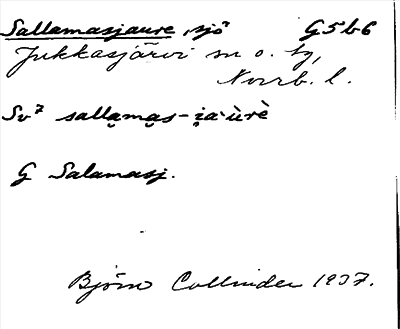 Sallamasjaure, sjö G5b6
Jukkasjärvi sn o. tg,
Norrb. l.
Sv⁷ salla̮ma̮s-i̯a·ùrè
G Salamasj.
Björn Collinder 1937.